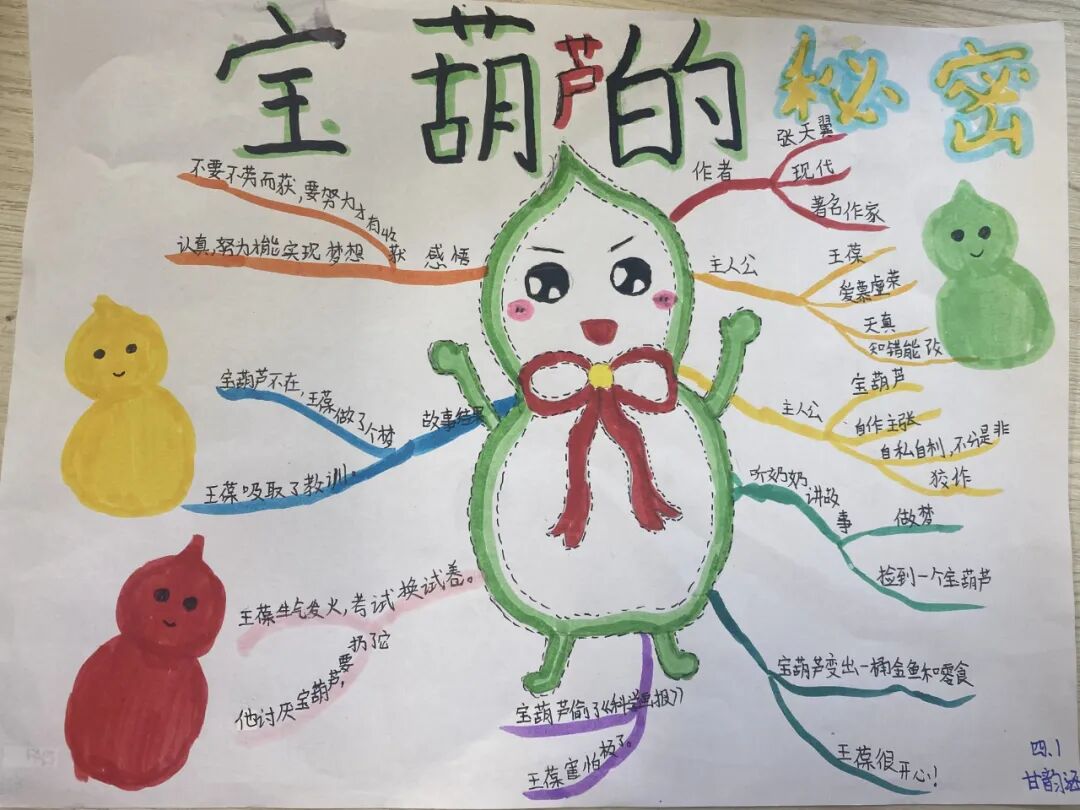 宝葫芦的秘密
作者
张天翼
现代
著名作家
主人公
王葆
爱慕虚荣
天真
知错能改
主人公
宝葫芦
自作主张
自私自利,不分是非
狡诈
听奶奶讲故事
做梦
捡到一个宝葫芦
宝葫芦变出一桶金鱼和零食
王葆很开心!
宝葫芦偷了《科学画报》
王葆害怕极了。
王葆生气发火,考试换试卷。
他讨厌宝葫芦,要扔了它
故事结果
宝葫芦不在,王葆做了个梦
王葆吸取了教训。
感悟
不要不劳而获,要努力才有收获
认真,努力才能实现梦想
四.1
甘韵涵